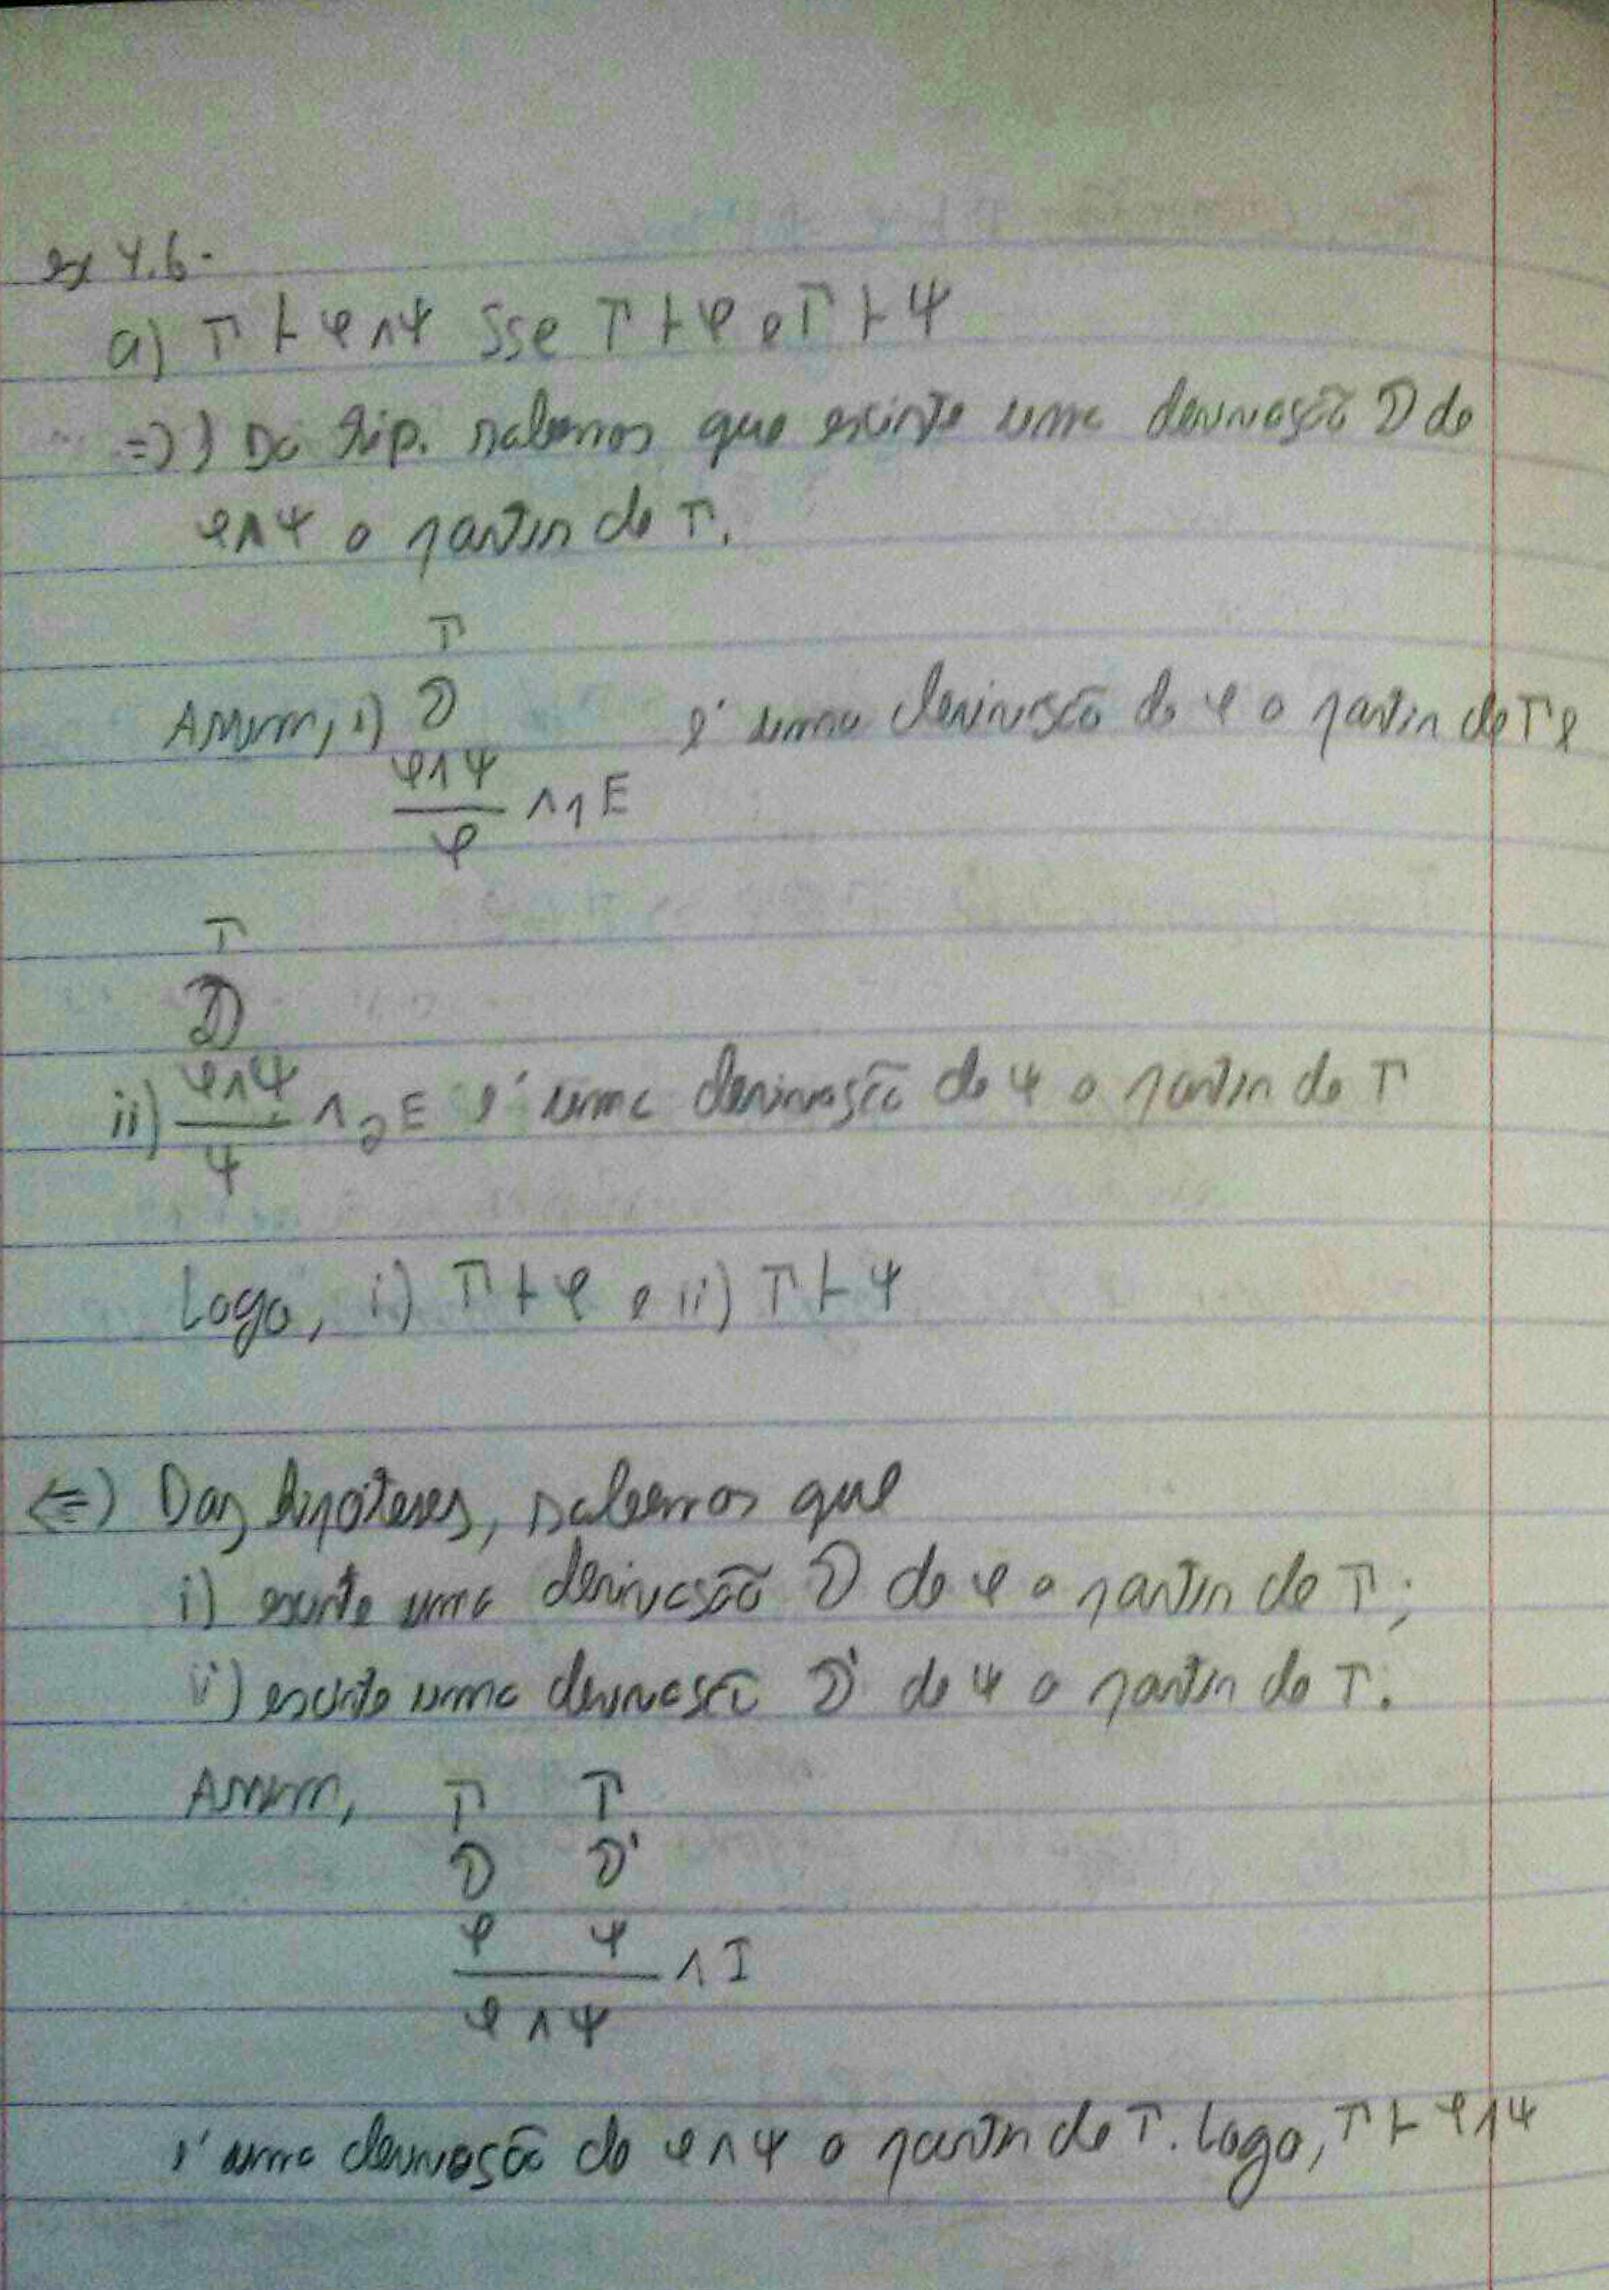 ex 4.6.
a) Γ ⊢ φ∧ψ sse Γ ⊢ φ e Γ ⊢ ψ
⇒) Da hip. sabemos que existe uma derivação D de
φ∧ψ a partir de Γ.
Γ
Assim, i) D é uma derivação de φ a partir de Γ e
φ∧ψ
∧₁E
φ
Γ
D
φ∧ψ
ii) ∧₂E é uma derivação de ψ a partir de Γ
ψ
Logo, i) Γ ⊢ φ e ii) Γ ⊢ ψ
⇐) Das hipóteses, sabemos que
i) existe uma derivação D de φ a partir de Γ;
ii) existe uma derivação D' de ψ a partir de Γ.
Assim, Γ Γ
D D'
φ ψ
∧I
φ∧ψ
é uma derivação de φ∧ψ a partir de Γ. Logo, Γ ⊢ φ∧ψ